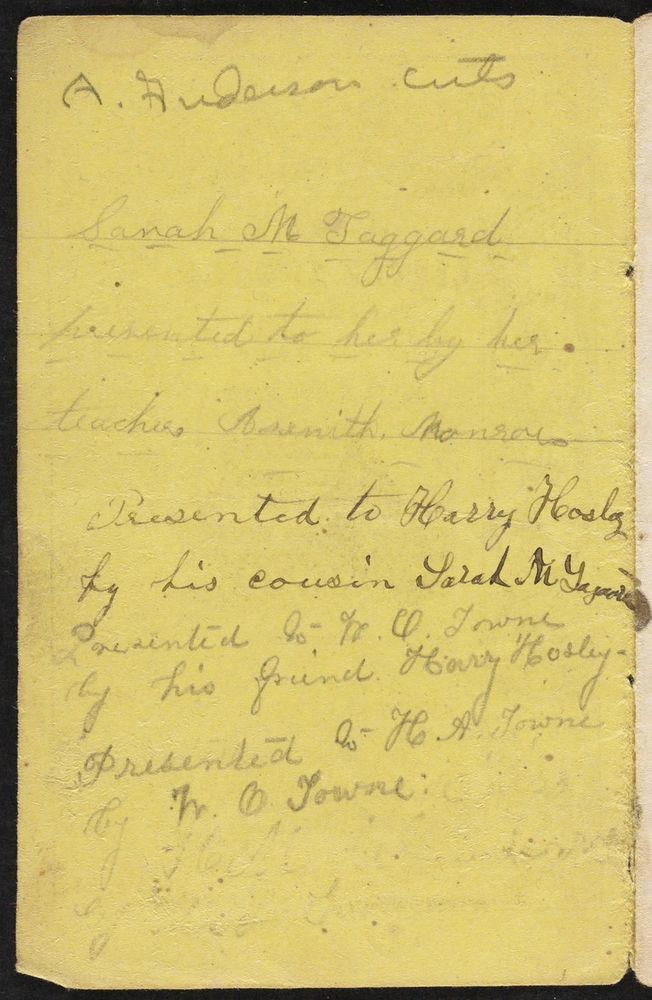 A. Anderson cuts
Sarah M Taggard
presented to her by her
teacher Asenith. Monroe
Presented to Harry Hosley
by his cousin Sarah M Tagard
Presented to W. O. Towne
by his friend Harry Hosley-
Presented to H A. Towne
by W. O Towne:
by